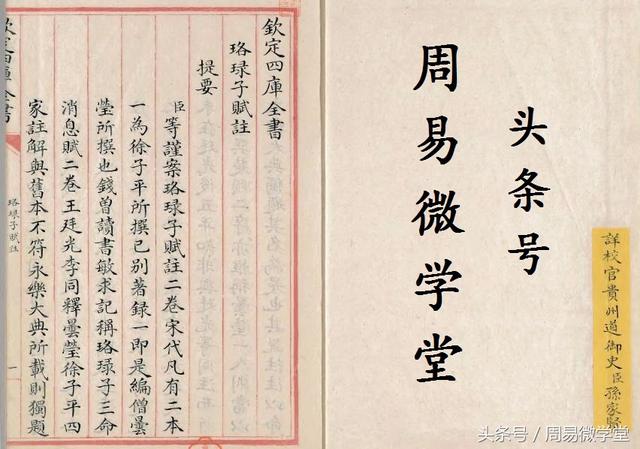 詳校官貴州道御史臣孫家賢
头条号
周易微学堂
欽定四庫全書
珞琭子賦註
提要
臣等謹案珞琭子賦註二卷宋代凡有二本
一為徐子平所撰已別著録一即是編僧曇
瑩所撰也錢曽讀書敏求記稱珞琭子三命
消息賦二卷王廷光李同釋曇瑩徐子平四
家註解與舊本不符永樂大典所載則獨題
欽定四庫全書
珞琭子賦註
一
头条号 / 周易微学堂